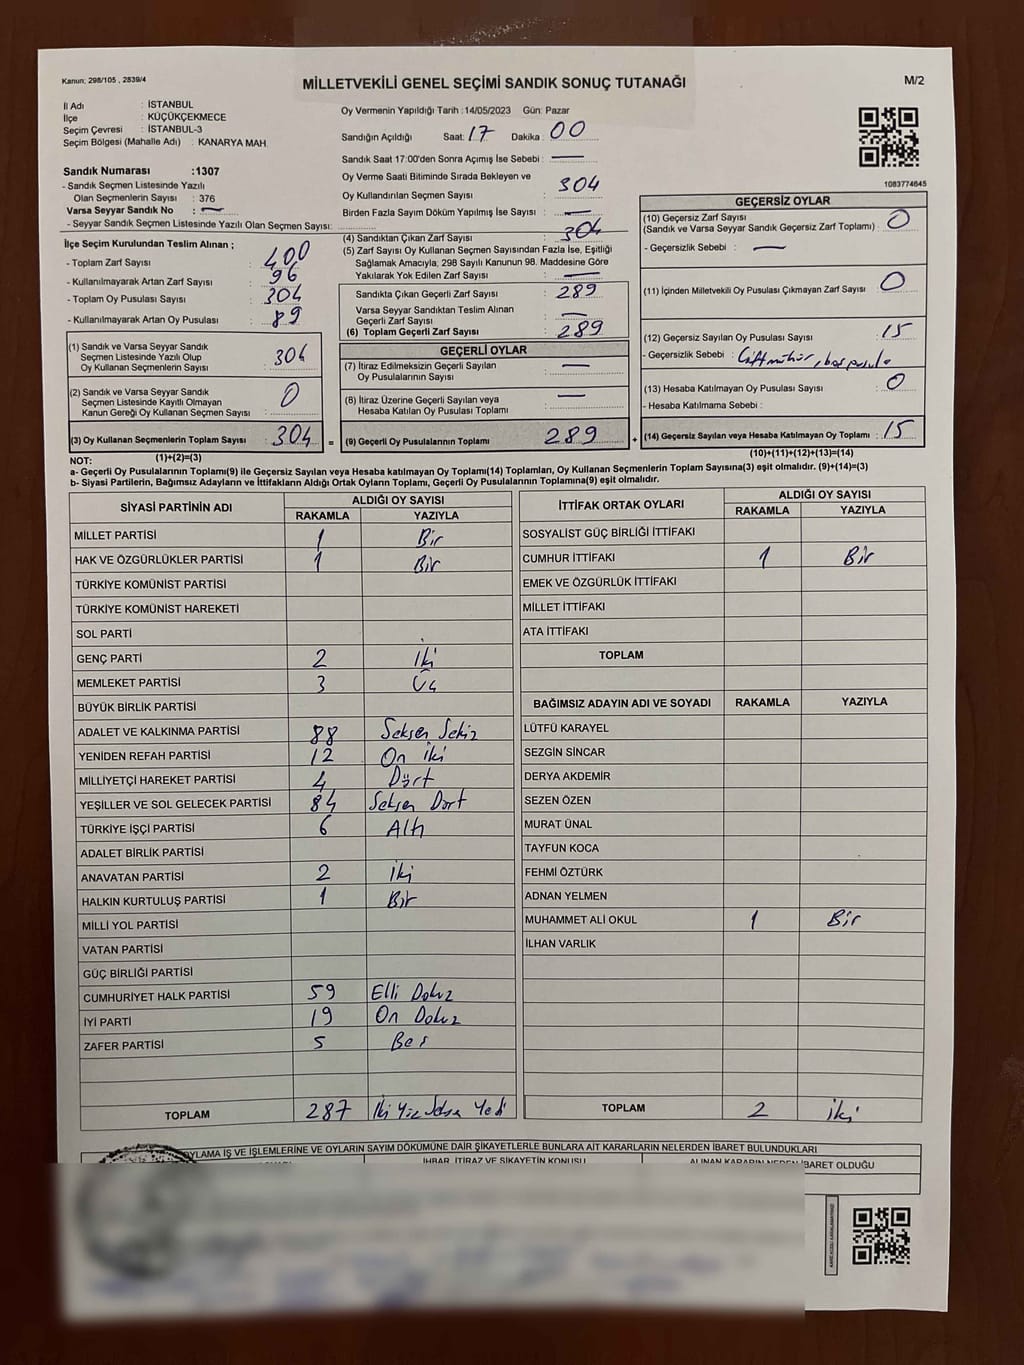 Kanun; 298/105 , 2839/4
MİLLETVEKİLİ GENEL SEÇİMİ SANDIK SONUÇ TUTANAĞI
M/2
İl Adı : İSTANBUL
İlçe : KÜÇÜKÇEKMECE
Seçim Çevresi : İSTANBUL-3
Seçim Bölgesi (Mahalle Adı) : KANARYA MAH
Sandık Numarası :1307
- Sandık Seçmen Listesinde Yazılı
Olan Seçmenlerin Sayısı : 376
Varsa Seyyar Sandık No : —
- Seyyar Sandık Seçmen Listesinde Yazılı Olan Seçmen Sayısı:
İlçe Seçim Kurulundan Teslim Alınan ;
- Toplam Zarf Sayısı : 400
- Kullanılmayarak Artan Zarf Sayısı : 96
- Toplam Oy Pusulası Sayısı : 304
- Kullanılmayarak Artan Oy Pusulası : 89
(1) Sandık ve Varsa Seyyar Sandık
Seçmen Listesinde Yazılı Olup
Oy Kullanan Seçmenlerin Sayısı : 304
(2) Sandık ve Varsa Seyyar Sandık
Seçmen Listesinde Kayıtlı Olmayan
Kanun Gereği Oy Kullanan Seçmen Sayısı : 0
(3) Oy Kullanan Seçmenlerin Toplam Sayısı : 304 =
(1)+(2)=(3)
Oy Vermenin Yapıldığı Tarih :14/05/2023 Gün: Pazar
Sandığın Açıldığı Saat: 17 Dakika : 00
Sandık Saat 17:00'den Sonra Açımış İse Sebebi : —
Oy Verme Saati Bitiminde Sırada Bekleyen ve
Oy Kullandırılan Seçmen Sayısı : 304
Birden Fazla Sayım Döküm Yapılmış İse Sayısı : —
(4) Sandıktan Çıkan Zarf Sayısı : 304
(5) Zarf Sayısı Oy Kullanan Seçmen Sayısından Fazla İse, Eşitliği
Sağlamak Amacıyla, 298 Sayılı Kanunun 98. Maddesine Göre
Yakılarak Yok Edilen Zarf Sayısı : —
Sandıkta Çıkan Geçerli Zarf Sayısı : 289
Varsa Seyyar Sandıktan Teslim Alınan
Geçerli Zarf Sayısı : —
(6) Toplam Geçerli Zarf Sayısı : 289
GEÇERLİ OYLAR
(7) İtiraz Edilmeksizin Geçerli Sayılan
Oy Pusulalarının Sayısı : —
(8) İtiraz Üzerine Geçerli Sayılan veya
Hesaba Katılan Oy Pusulası Toplamı : —
(9) Geçerli Oy Pusulalarının Toplamı 289 +
1083774645
GEÇERSİZ OYLAR
(10) Geçersiz Zarf Sayısı
(Sandık ve Varsa Seyyar Sandık Geçersiz Zarf Toplamı) : 0
- Geçersizlik Sebebi : —
(11) İçinden Milletvekili Oy Pusulası Çıkmayan Zarf Sayısı : 0
(12) Geçersiz Sayılan Oy Pusulası Sayısı : 15
- Geçersizlik Sebebi : Çift mühür, boş pusula
(13) Hesaba Katılmayan Oy Pusulası Sayısı : 0
- Hesaba Katılmama Sebebi :
(14) Geçersiz Sayılan veya Hesaba Katılmayan Oy Toplamı : 15
(10)+(11)+(12)+(13)=(14)
NOT:
a- Geçerli Oy Pusulalarının Toplamı(9) ile Geçersiz Sayılan veya Hesaba katılmayan Oy Toplamı(14) Toplamları, Oy Kullanan Seçmenlerin Toplam Sayısına(3) eşit olmalıdır. (9)+(14)=(3)
b- Siyasi Partilerin, Bağımsız Adayların ve İttifakların Aldığı Ortak Oyların Toplamı, Geçerli Oy Pusulalarının Toplamına(9) eşit olmalıdır.
SİYASİ PARTİNİN ADI ALDIĞI OY SAYISI
RAKAMLA YAZIYLA
MİLLET PARTİSİ 1 Bir
HAK VE ÖZGÜRLÜKLER PARTİSİ 1 Bir
TÜRKİYE KOMÜNİST PARTİSİ
TÜRKİYE KOMÜNİST HAREKETİ
SOL PARTİ
GENÇ PARTİ 2 İki
MEMLEKET PARTİSİ 3 Üç
BÜYÜK BİRLİK PARTİSİ
ADALET VE KALKINMA PARTİSİ 88 Seksen Sekiz
YENİDEN REFAH PARTİSİ 12 On İki
MİLLİYETÇİ HAREKET PARTİSİ 4 Dört
YEŞİLLER VE SOL GELECEK PARTİSİ 84 Seksen Dört
TÜRKİYE İŞÇİ PARTİSİ 6 Altı
ADALET BİRLİK PARTİSİ
ANAVATAN PARTİSİ 2 İki
HALKIN KURTULUŞ PARTİSİ 1 Bir
MİLLİ YOL PARTİSİ
VATAN PARTİSİ
GÜÇ BİRLİĞİ PARTİSİ
CUMHURİYET HALK PARTİSİ 59 Elli Dokuz
İYİ PARTİ 19 On Dokuz
ZAFER PARTİSİ 5 Beş
TOPLAM 287 İki Yüz Seksen Yedi
İTTİFAK ORTAK OYLARI ALDIĞI OY SAYISI
RAKAMLA YAZIYLA
SOSYALİST GÜÇ BİRLİĞİ İTTİFAKI
CUMHUR İTTİFAKI 1 Bir
EMEK VE ÖZGÜRLÜK İTTİFAKI
MİLLET İTTİFAKI
ATA İTTİFAKI
TOPLAM
BAĞIMSIZ ADAYIN ADI VE SOYADI RAKAMLA YAZIYLA
LÜTFÜ KARAYEL
SEZGİN SİNCAR
DERYA AKDEMİR
SEZEN ÖZEN
MURAT ÜNAL
TAYFUN KOCA
FEHMİ ÖZTÜRK
ADNAN YELMEN
MUHAMMET ALİ OKUL 1 Bir
İLHAN VARLIK
TOPLAM 2 İki
OYLAMA İŞ VE İŞLEMLERİNE VE OYLARIN SAYIM DÖKÜMÜNE DAİR ŞİKAYETLERLE BUNLARA AİT KARARLARIN NELERDEN İBARET BULUNDUKLARI
İHBAR, İTİRAZ VE ŞİKAYETİN KONUSU ALINAN KARARIN NEDEN İBARET OLDUĞU